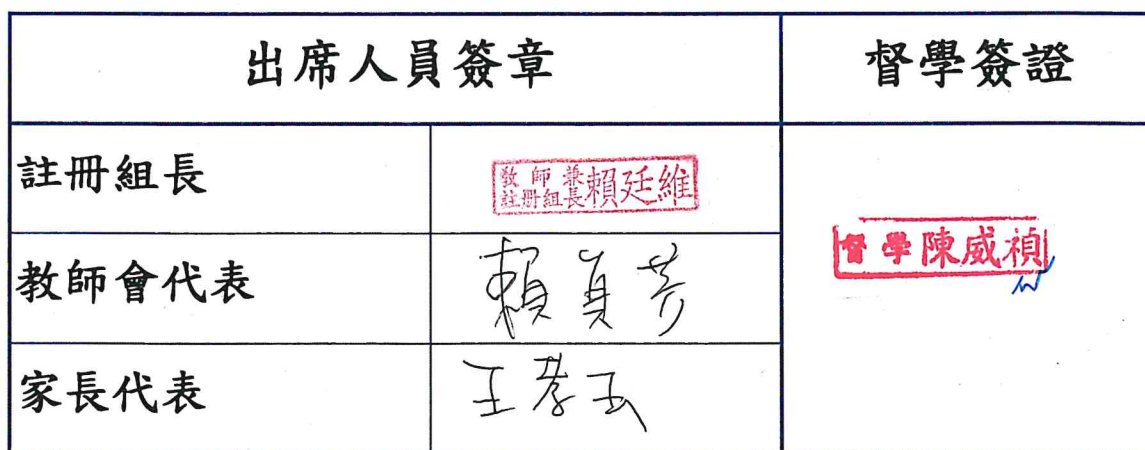 出席人員簽章 督學簽證
註冊組長
教師兼
註冊組長
賴廷維
督學陳威禎
教師會代表
賴貞
家長代表
王孝